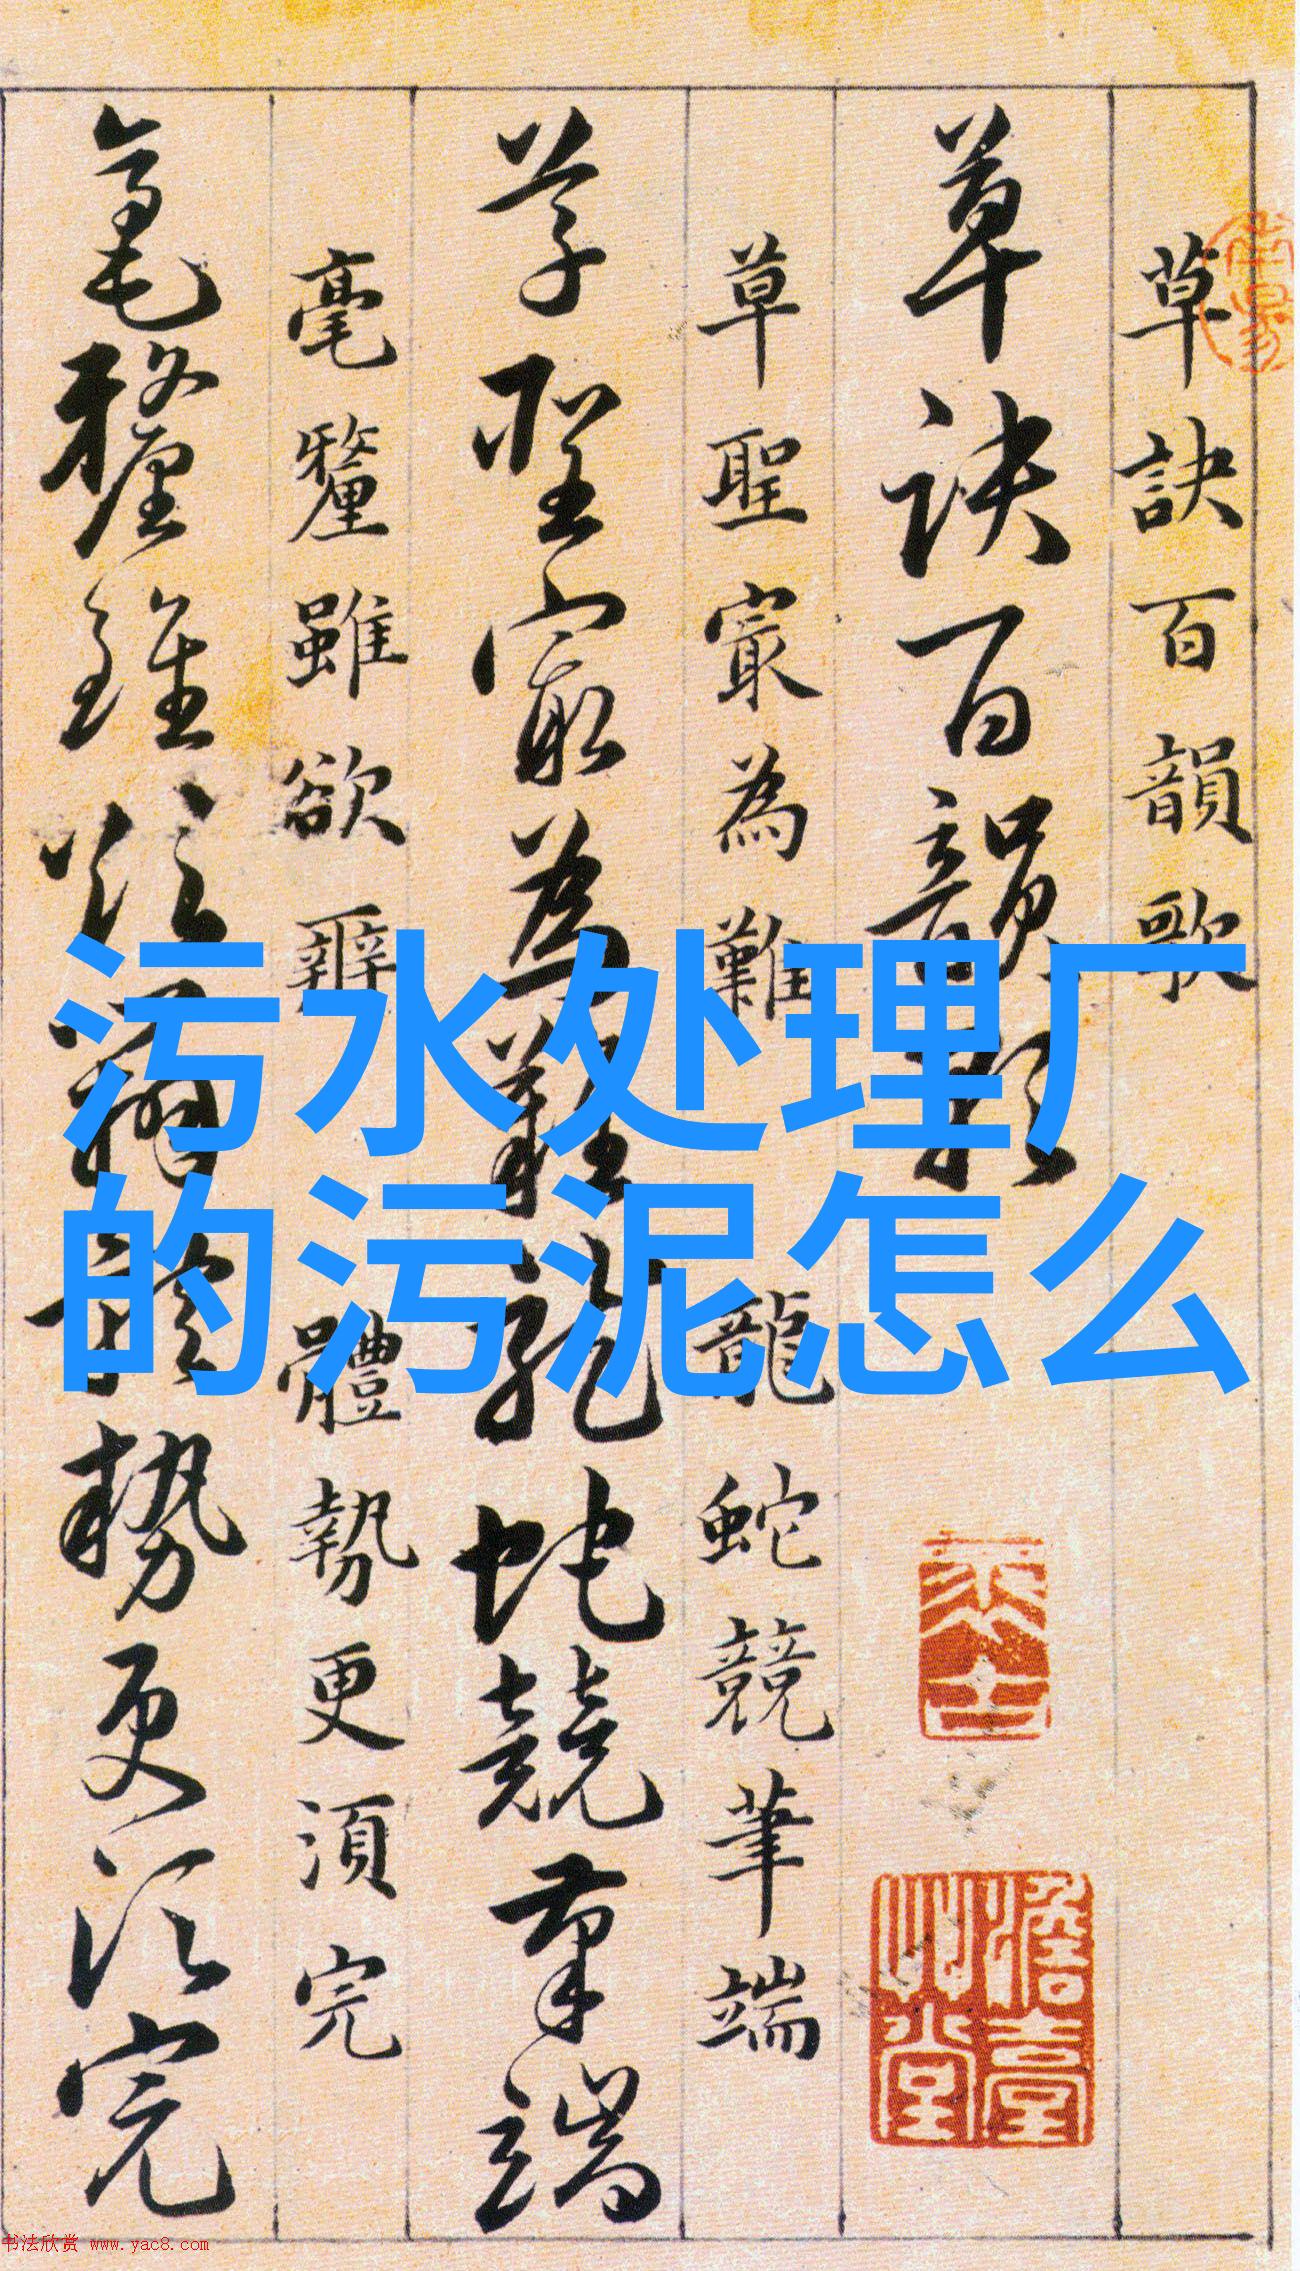 草訣百韻歌
草訣百韻歌
草聖寂為難 龍蛇競筆端
草聖寂為難龍蛇競筆端
毫釐雖欲辨 體勢更須完
毫釐雖欲辨體勢更須完
污水处理厂
的污泥怎么
书法欣赏 www.yac8.com